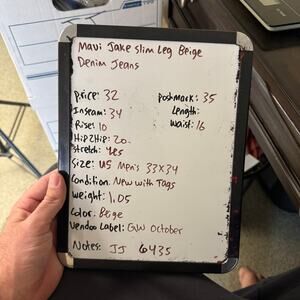 Mavi Jake Slim Leg Beige
Denim Jeans
Price: 32
Poshmark: 35
Inseam: 34
Length:
Rise: 10
Waist: 16
Hip2Hip: 20
Stretch: yes
Size: US Men's 33x34
Condition: New with Tags
Weight: 1.05
Color: Beige
Vendoo Label: GW October
Notes: JJ 6435